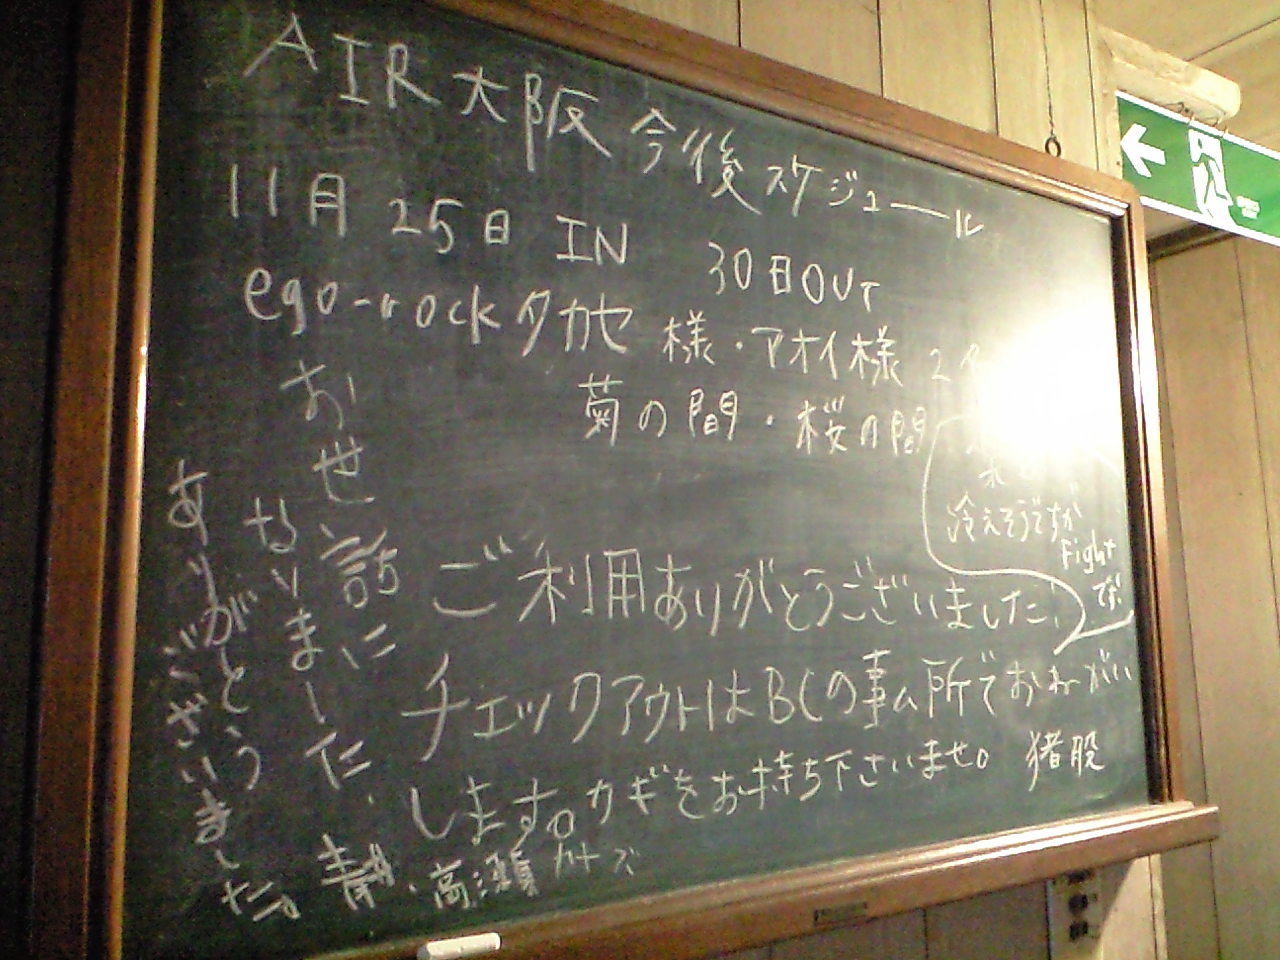 AIR大阪 今後スケジュール
11月 25日 IN 30日OUT
ego-rockタカセ 様・アオイ様 2
菊の間・桜の間
冷えそうですが
Fight
です
ご利用ありがとうございました
チェックアウトはBCの事ム所でおねがい
します。カギをお持ち下さいませ。 猪股
お世話に
なりました。
ありがとう
ございました。
青井・高瀬